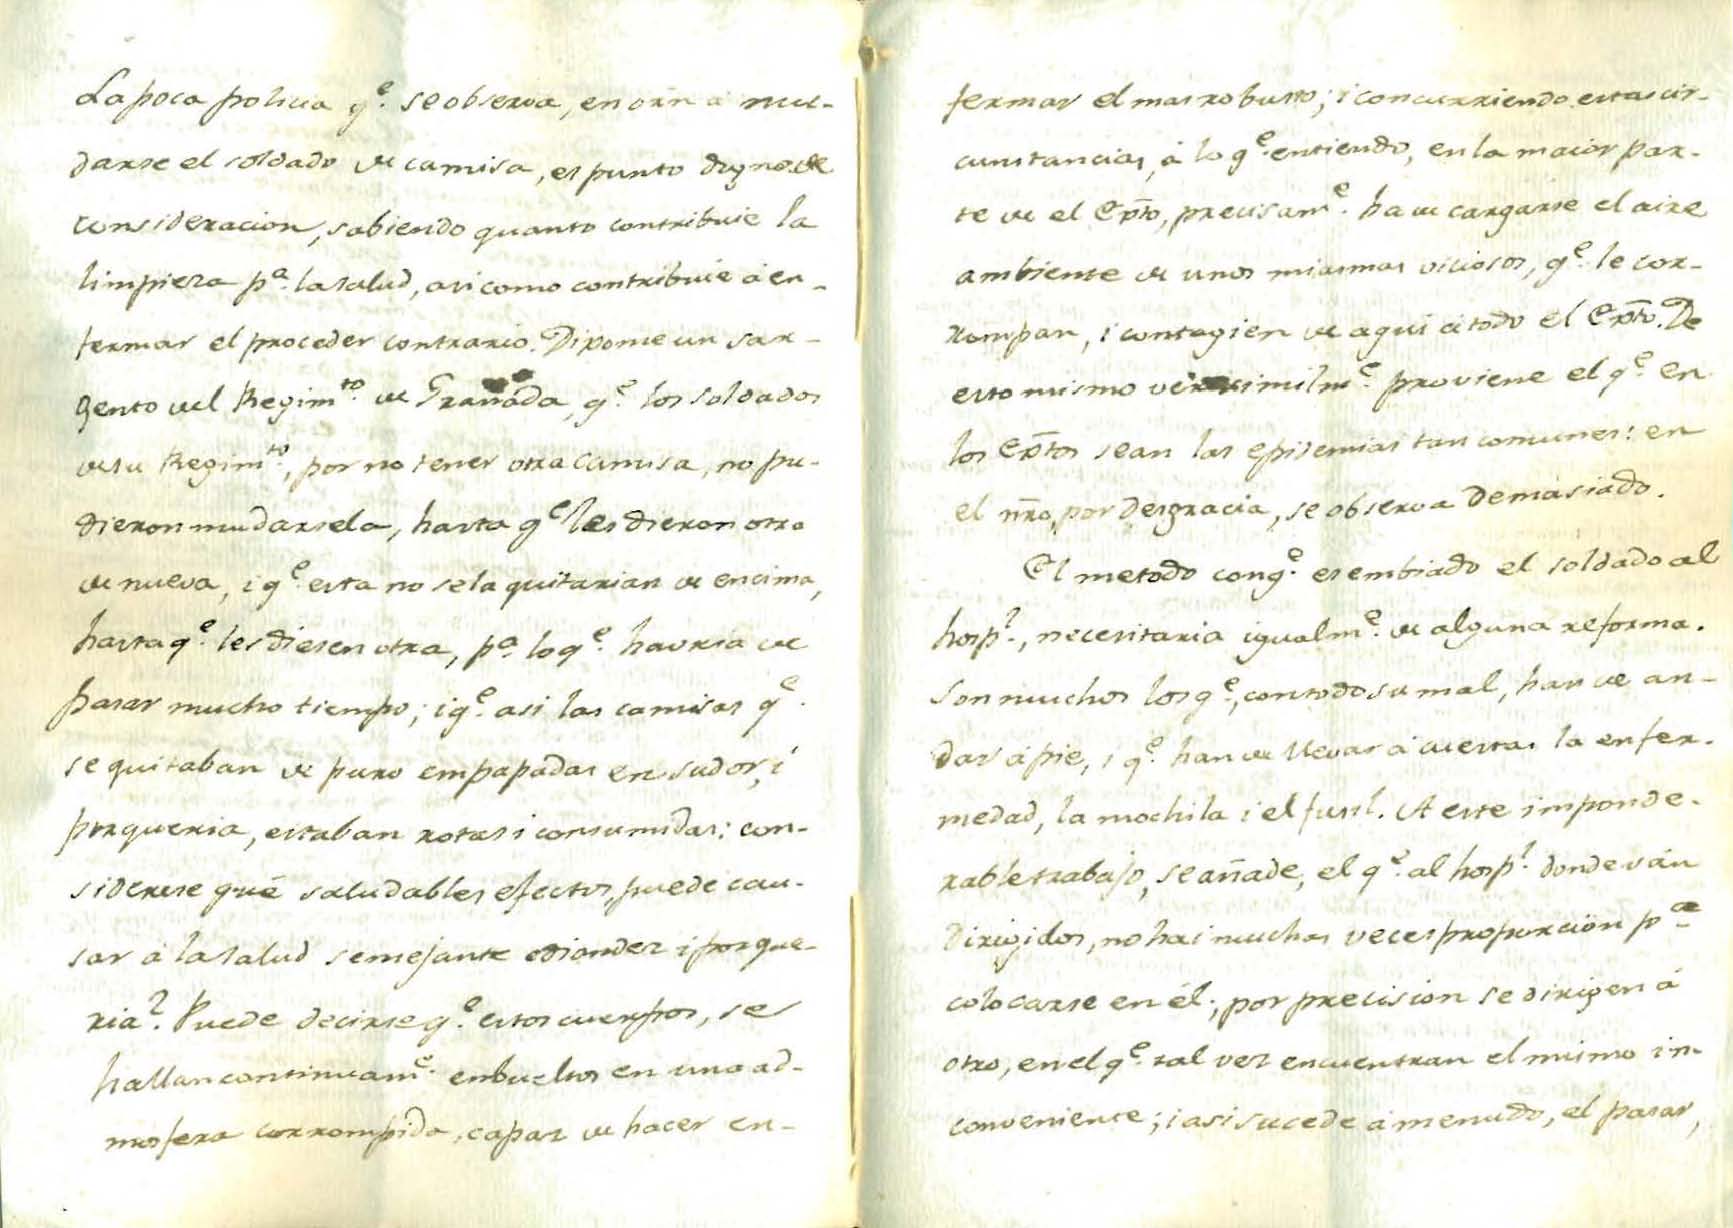 La poca policia q.e se observa, en orn a mu-
darse el soldado de camisa, es punto digno de
consideracion, sabiendo quanto contribuie la
limpieza p.a la salud, asi como contribuie á en-
fermar el proceder contrario. Dixome un sar-
gento del Regim.to de Granada, q.e los soldados
de su Regim.to, por no tener otra camisa, no pu-
dieron mudarsela, hasta q.e les dieron otra
de nueva, i q.e esta no se la quitarian de encima,
hasta q.e les diesen otra, p.a lo q.e havria de
pasar mucho tiempo; i q.e asi las camisas q.e
se quitaban de puro empapadas en sudor, i
porqueria, estaban rotas i consumidas: con-
siderese qué saludables efectos, puede cau-
sar á la salud semejante ediondez i porque-
ria? Puede decirse q.e estos cuerpos, se
hallan continuam.e enbueltos en una ad-
mosfera corrompida, capaz de hacer en-
fermar el mas robusto; i concurriendo estas cir-
cunstancias, á lo q.e entiendo, en la maior par-
te de el Exto, precisam.e ha de cargarse el aire
ambiente de unos miasmas viciosos, q.e le cor-
rompan, i contagien de aqui á todo el Exto. De
esto mismo verisimilm.e proviene el q.e en
los Extos sean las epidemias tan comunes: en
el nro, por desgracia, se observa demasiado.
El metodo con q.e es embiado el soldado al
hosp.l, necesitaria igualm.e de alguna reforma.
Son muchos los q.e, con todo su mal, han de an-
dar á pie, i q.e han de llevar á cuestas la enfer-
medad, la mochila i el fusil. A este imponde-
rable trabajo, se añade, el q.e al hosp.l donde ván
dirigidos, no hai muchas veces proporcion p.a
colocarse en él; por precision se dirigen á
otro, en el q.e tal vez encuentran el mismo in-
conveniente; i asi sucede á menudo, el pasar,